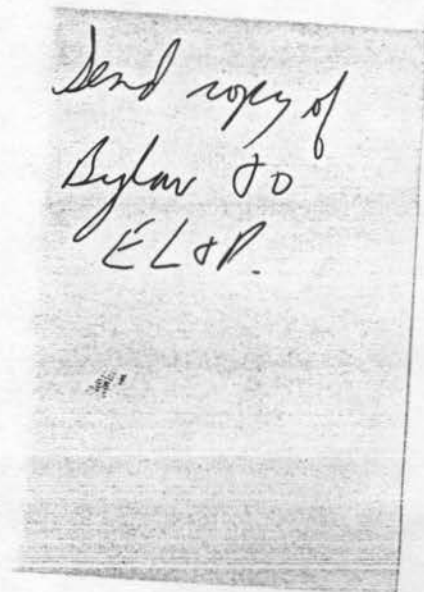 Send copy of
Bylaw to
EL&P.